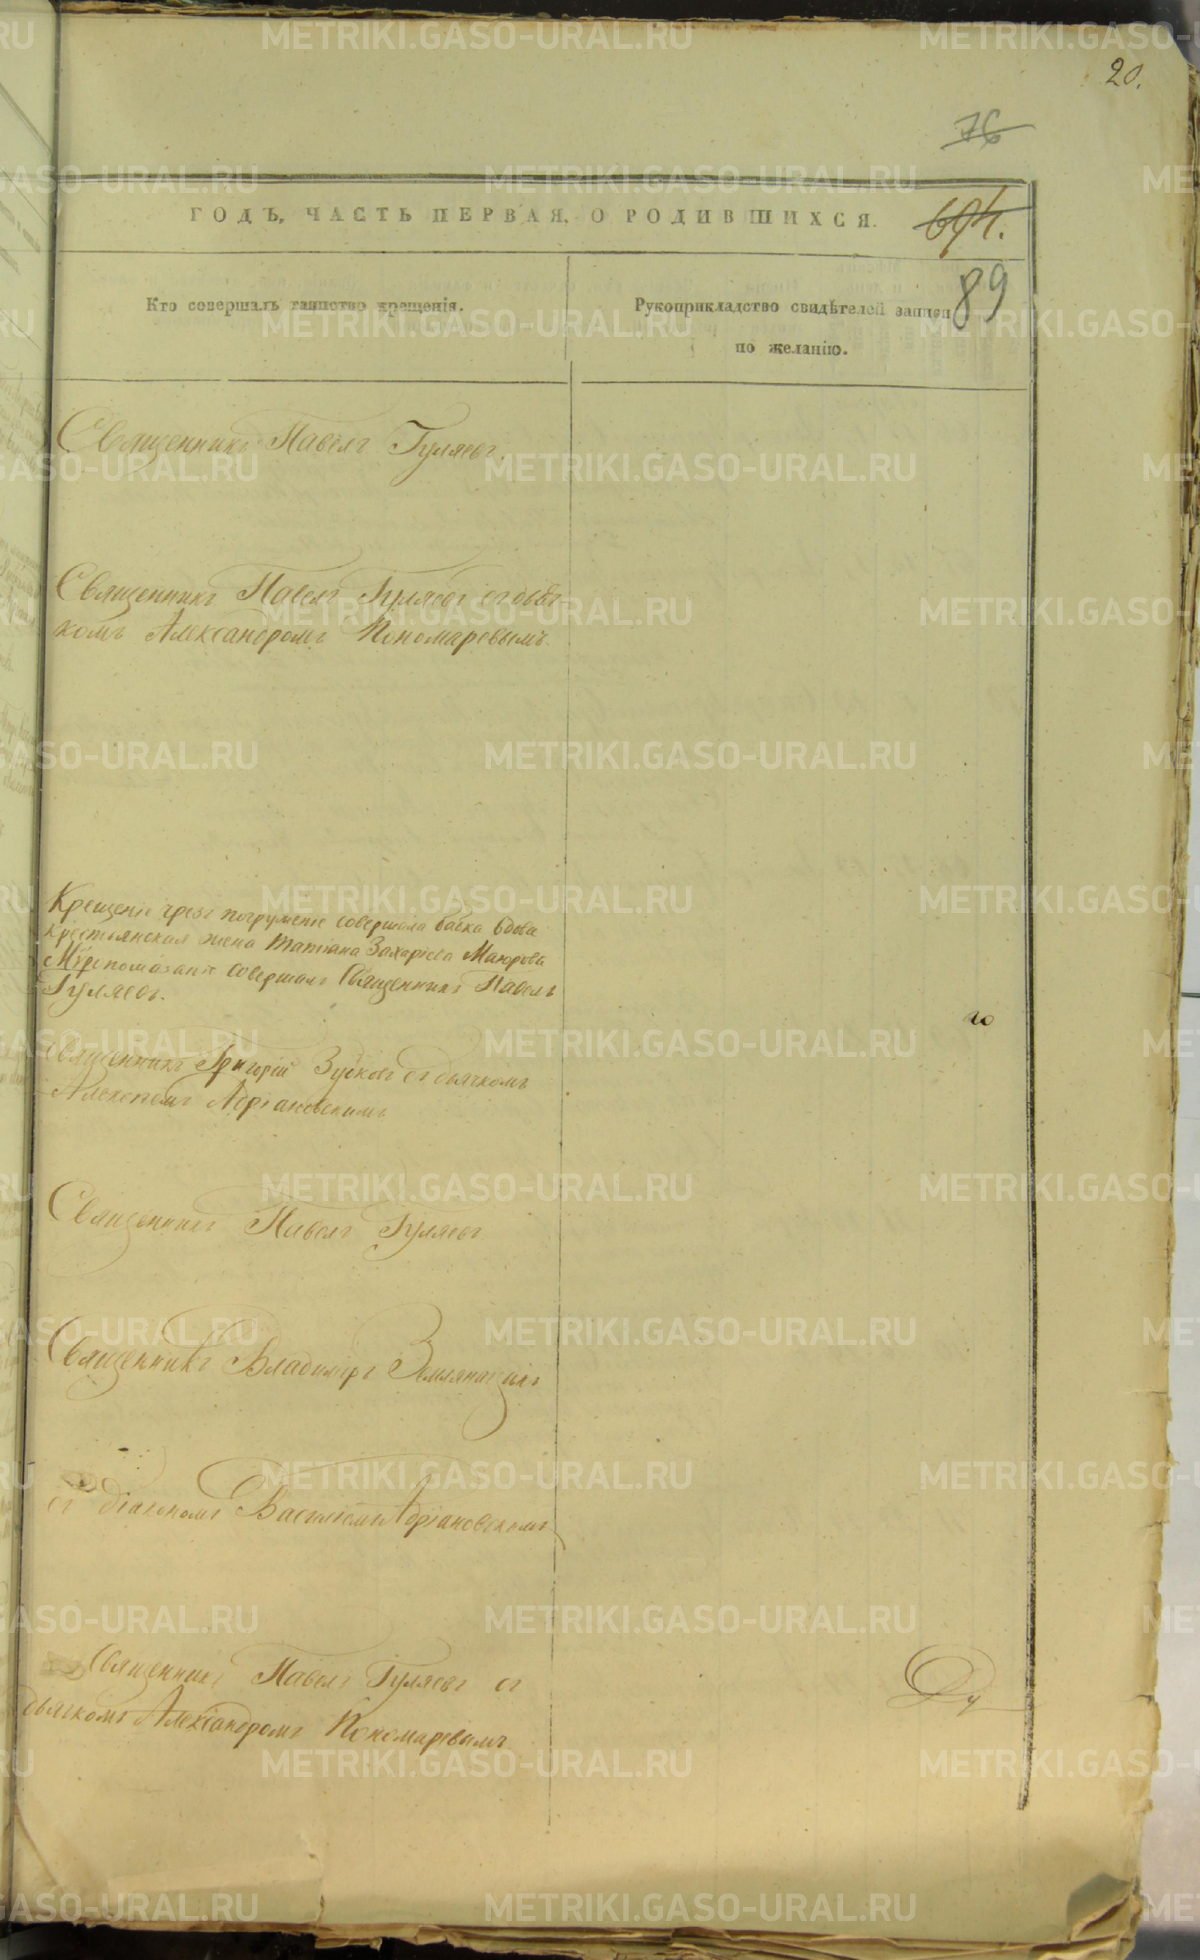 20.
76
ГОДЪ, ЧАСТЬ ПЕРВАЯ, О РОДИВШИХСЯ.
694.
89
Кто совершалъ таинство крещенія.
Рукоприкладство свидѣтелей записи
по желанію.
Священникъ Павелъ Гуляевъ.
Священникъ Павелъ Гуляевъ съ дьяч-
комъ Александромъ Пономаревымъ.
Крещеніе чрезъ погруженіе совершила бабка вдова
крестьянская жена Татіана Захаріева Маюрова
Мѵропомазаніе совершалъ Священникъ Павелъ
Гуляевъ.
Священникъ Григорій съ дьячкомъ
Алексѣемъ Адріановскимъ
Священникъ Павелъ Гуляевъ
Священникъ Владиміръ Земляницынъ
съ діакономъ Василіемъ Адріановскимъ
Священникъ Павелъ Гуляевъ съ
дьячкомъ Александромъ Пономаревымъ
METRIKI.GASO-URAL.RU